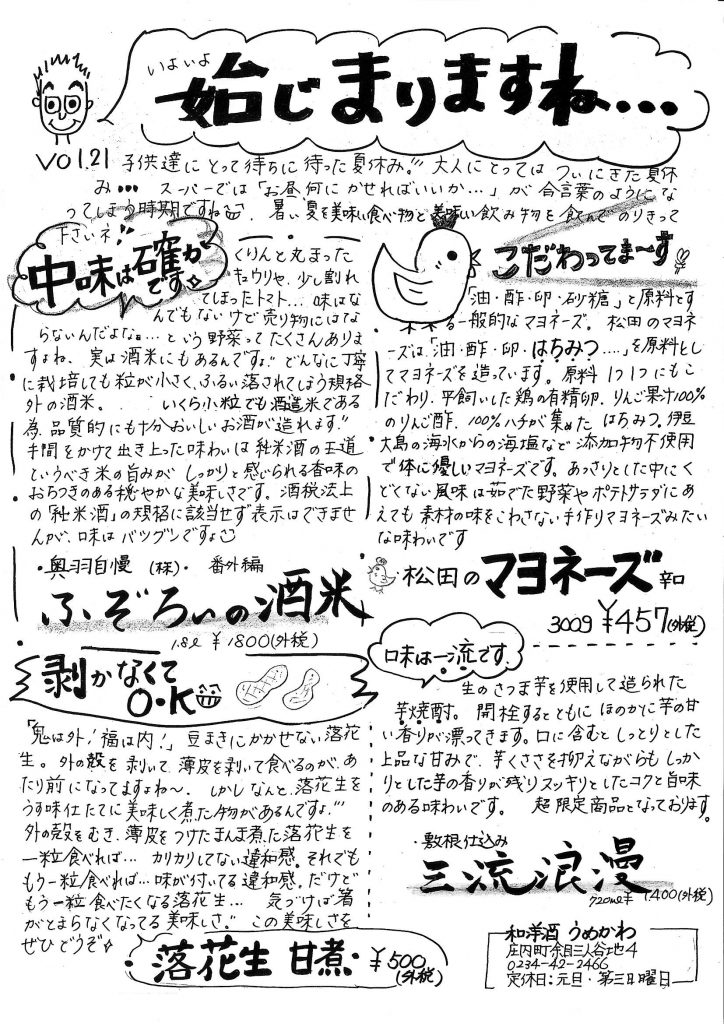 いよいよ
始じまりますね...
VOl.21
子供達にとって待ちに待った夏休み!!! 大人にとっては ついにきた夏休
み... スーパーでは「お昼何にかせればいいか...」が 合言葉のようにな
ってしまう時期ですね 。暑い夏を美味い食べ物と美味しい飲み物を飲んで のりきって
下さいネ!!
中味は確か
です
くりんと丸まった
キュウリや、少し割れ
てしまったトマト... 味はな
んでもないけど売り物にはな
らないんだよな。... という野菜ってたくさんありま
すよね、実は酒米にもあるんですよ!! どんなに丁寧
に栽培しても粒が小さく、ふるい落されてしまう規格
外の酒米。 いくら小粒でも酒造米である
為、品質的にも十分おいしいお酒が造れます!!
手間をかけて出き上った味わいは純米酒の王道
というべき米の旨みが しっかりと感じられる香味の
おちつきのある穏やかな美味しさです。酒税法上
の「純米酒」の規格に該当せず表示はできませ
んが、味はバツグンですよ
・奥羽自慢 (株)・ 番外編
ふぞろいの酒米
1.8ℓ ¥1800(外税)
こだわってま〜す
「油・酢・卵・砂糖」と原料とす
る一般的なマヨネーズ。松田のマヨネ
ーズは、「油・酢・卵・はちみつ....」を原料とし
てマヨネーズを造っています。原料 1つ1つにもこ
だわり、平飼いした鶏の有精卵、りんご果汁100%
のりんご酢、100%ハチが集めた はちみつ、伊豆
大島の海水からの海塩など 添加物不使用
で体に優しいマヨネーズです。あっさりとした中にく
どくない風味は茹でた野菜やポテトサラダにあ
えても 素材の味をこわさない手作りマヨネーズみたい
な味わいです
松田のマヨネーズ 辛口
300g ¥457(外税)
剥かなくて
O・K
「鬼は外! 福は内!」 豆まきにかかせない落花
生。外の殻を剥いて、薄皮を剥いて食べるのが、あ
たり前になってますよね〜。しかしなんと、落花生を
うす味仕たてに美味しく煮た物があるんですよ!!!
外の殻をむき、薄皮をつけたまんま煮た落花生を
一粒食べれば... カリカリしてない違和感。それでも
もう一粒食べれば... 味が付いてる違和感。だけど
もう一粒食べたくなる落花生... 気づけば箸
がとまらなくなってる美味しさ!! この美味しさを
ぜひどうぞ
落花生 甘煮・¥500
(外税)
口味は一流です、
生のさつま芋を使用して造られた
芋焼酎。開栓するとともに ほのかに芋の甘
い香りが漂ってきます。口に含むとしっとりとした
上品な甘みで、芋くささを抑えながらもしっ
かりとした芋の香りが残りスッキリとしたコクと旨味
のある味わいです。 超限定商品となっております。
・敷根仕込み
三流浪漫
720mℓ ¥1400(外税)
和洋酒 うめかわ
庄内町余目三人谷地4
0234-42-2466
定休日:元旦・第三日曜日